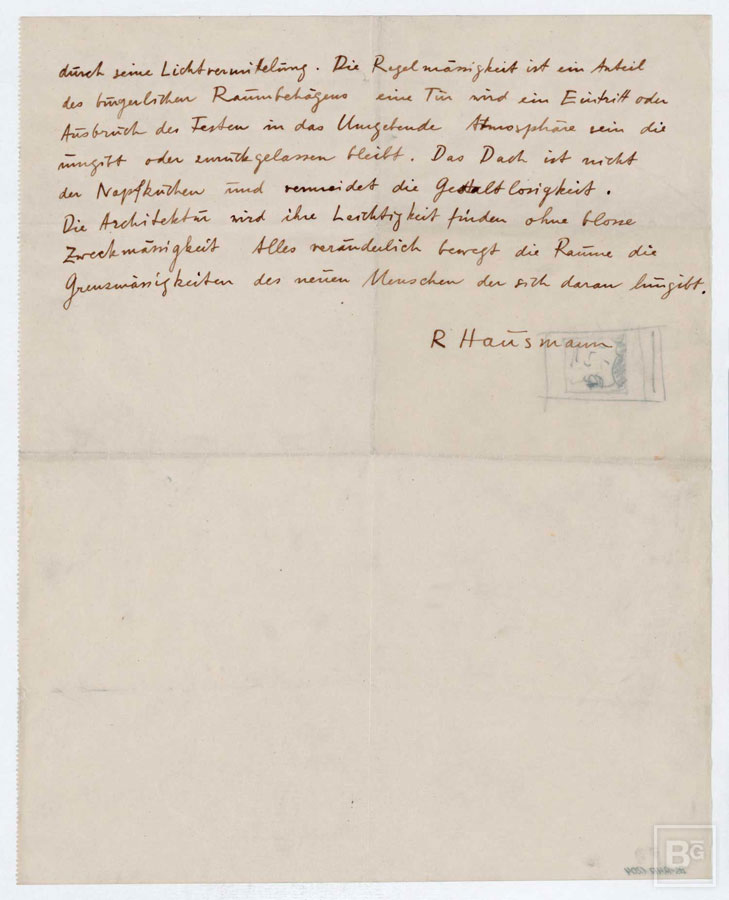 durch seine Lichtvermittelung. Die Regelmässigkeit ist ein Anteil
des bürgerlichen Raumbehagens eine Tür wird ein Eintritt oder
Ausbruch des Festen in das Umgebende Atmosphäre sein die
umgibt oder zurückgelassen bleibt. Das Dach ist nicht
der Napfkuchen und vermeidet die Gestaltlosigkeit.
Die Architektur wird ihre Leichtigkeit finden ohne blosse
Zweckmässigkeit Alles veränderlich bewegt die Räume die
Grenzmässigkeiten des neuen Menschen der sich daran hingibt.
R Hausmann
BG